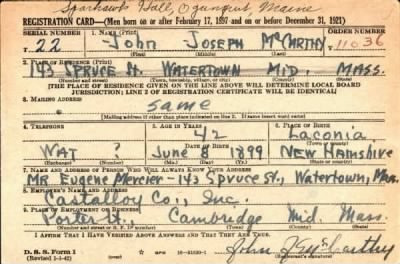 Sparhawk Hall, Ogunquit Maine
REGISTRATION CARD—(Men born on or after February 17, 1897 and on or before December 31, 1921)
SERIAL NUMBER 1. NAME (Print) ORDER NUMBER
T 22 John Joseph McCarthy T 11036
(First) (Middle) (Last)
2. PLACE OF RESIDENCE (Print)
143 Spruce St. Watertown Mid. Mass.
(Number and street) (Town, township, village, or city) (County) (State)
[THE PLACE OF RESIDENCE GIVEN ON THE LINE ABOVE WILL DETERMINE LOCAL BOARD
JURISDICTION; LINE 2 OF REGISTRATION CERTIFICATE WILL BE IDENTICAL]
3. MAILING ADDRESS
Same
[Mailing address if other than place indicated on line 2. If same insert word same]
4. TELEPHONE 5. AGE IN YEARS 6. PLACE OF BIRTH
42 Laconia
DATE OF BIRTH (Town or county)
WAT ? June 8 1899 New Hamshire
(Exchange) (Number) (Mo.) (Day) (Yr.) (State or country)
7. NAME AND ADDRESS OF PERSON WHO WILL ALWAYS KNOW YOUR ADDRESS
Mr Eugene Mercier - 143 Spruce St., Watertown, Mass.
8. EMPLOYER'S NAME AND ADDRESS
Castalloy Co., Inc.
9. PLACE OF EMPLOYMENT OR BUSINESS
Porter St., Cambridge Mid. Mass.
(Number and street or R. F. D. number) (Town) (County) (State)
I AFFIRM THAT I HAVE VERIFIED ABOVE ANSWERS AND THAT THEY ARE TRUE.
D. S. S. Form 1
(Revised 1-1-42) (over) GPO 16-21630-1
John J McCarthy